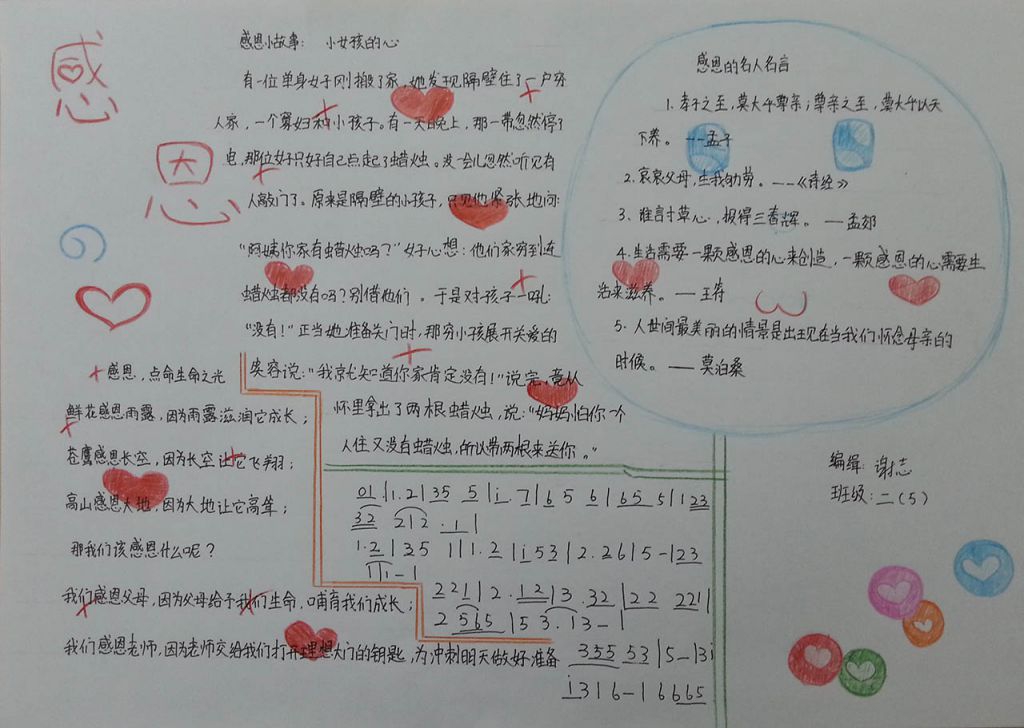 感
恩
感恩小故事： 小女孩的心
有一位单身女子刚搬了家，她发现隔壁住了一户穷
人家，一个寡妇和小孩子。有一天晚上，那一带忽然停了
电，那位女子只好自己点起了蜡烛。没一会儿忽然听见有
人敲门了。原来是隔壁的小孩子，只见他紧张地问：
“阿姨你家有蜡烛吗？”女子心想：他们家穷到连
蜡烛都没有吗？别借他们。于是对孩子一吼：
“没有！”正当她准备关门时，那穷小孩展开关爱的
笑容说：“我就知道你家肯定没有！”说完，竟从
怀里拿出了两根蜡烛，说：“妈妈怕你一个
人住又没有蜡烛，所以带两根来送你。”
感恩，点命生命之光
鲜花感恩雨露，因为雨露滋润它成长；
苍鹰感恩长空，因为长空让它飞翔；
高山感恩大地，因为大地让它高耸；
那我们该感恩什么呢？
我们感恩父母，因为父母给予我们生命，哺育我们成长；
我们感恩老师，因为老师交给我们打开理想大门的钥匙，为冲刺明天做好准备
感恩的名人名言
1. 孝子之至，莫大乎尊亲；尊亲之至，莫大乎以天
下养。--孟子
2. 哀哀父母，生我劬劳。---《诗经》
3、谁言寸草心，报得三春辉。—孟郊
4. 生活需要一颗感恩的心来创造，一颗感恩的心需要生
活来滋养。—王符
5. 人世间最美丽的情景是出现在当我们怀念母亲的
时候。— 莫泊桑
编缉：谢志
班级：二（5）
01|1.2|35 5|i.7|65 6|65 5|123
32 212 .1|
1.2|35 1|1.2|i53|2.26|5-|23
11-1
221|2.12|3.32|22 221|
2 565|53.13-|
355 53|5-|3i
i316-|6665